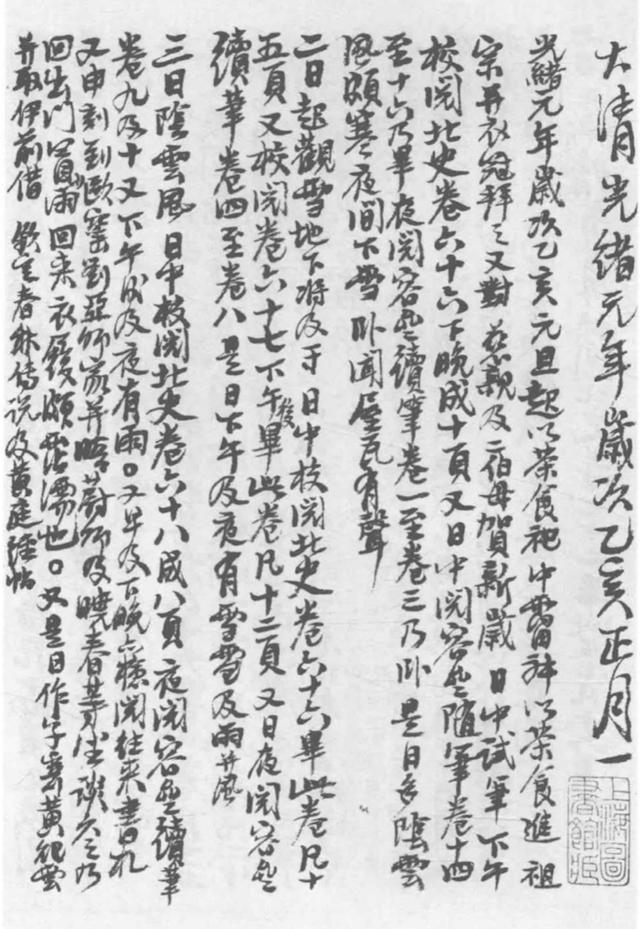 大清光緒元年歲次乙亥正月一
光緒元年歲次乙亥元旦起以茶食祀中霤神以茶食進 祖
宗并衣冠拜之又對 慈親及二伯母賀新歲 日中試筆下午
校閱北史卷六十六下晚成十頁又日中閱容齋隨筆卷十四
至十六乃畢夜閱容齋續筆卷一至卷三乃卧是日多陰雲
風頗寒夜間下雪卧聞屋瓦有聲
二日起觀雪地下將及寸日中校閱北史卷六十六畢此卷凡十
五頁又校閱卷六十七下午後畢此卷凡十二頁又日夜閱容齋
續筆卷四至卷八是日下午及夜有雪雪及雨并風
三日陰雲風日中校閱北史卷六十八成八頁夜閱容齋續筆
卷九及十又下午後及夜有雨又早及下晚檢閱往來書札
又申刻到歐窰劉亞師家并晤蔚師及曉春等坐談久之乃
回出門冒雨回來衣履頗霑濡也又是日作字寄黃
并取伊前借 春秋傳說及黃庭經帖
上海圖書館藏